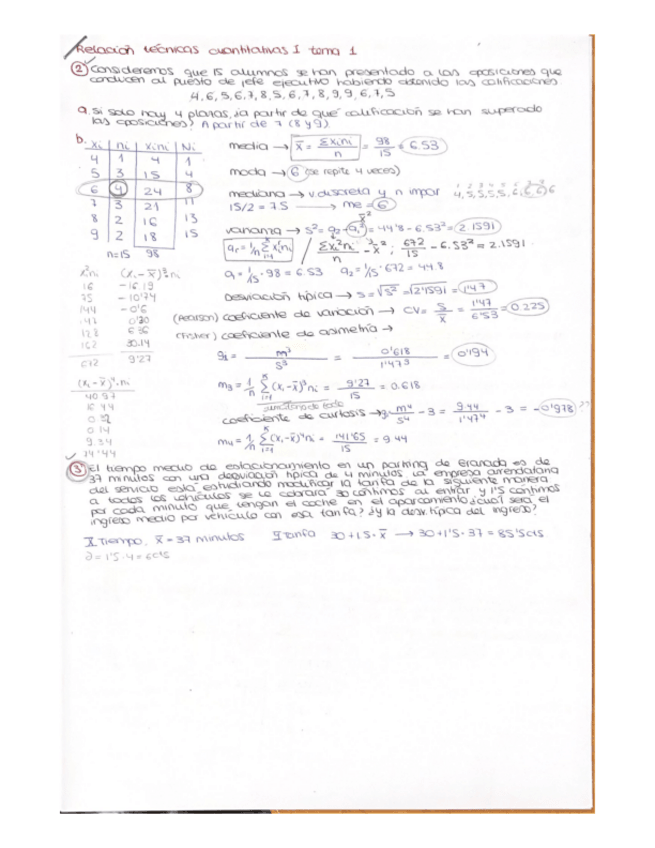 Relación técnicas cuantitativas I tema 1
② Consideremos que 15 alumnos se han presentado a las oposiciones que
conducen al puesto de jefe ejecutivo habiendo obtenido las calificaciones
4,6,5,6,7,8,5,6,7,8,9,9,6,7,5
a. Si solo hay 4 plazas, ¿a partir de que calificación se han superado
las oposiciones? A partir de 7 (8 y 9)
b. xi ni xini Ni
4 1 4 1
5 3 15 4
6 4 24 8
7 3 21 11
8 2 16 13
9 2 18 15
n=15 98
media → x̄ = Σxini / n = 98/15 = 6.53
moda → 6 (se repite 4 veces)
mediana → v.discreta y n impar 4,5,5,5,6,6,6,6
15/2 = 7.5 → me = 6
varianza → s² = a₂ - a₁² = 44'8 - 6.53² = 2'1591
ar = 1/n Σ xi^r ni / Σxi²ni / n - x̄² ; 672/15 - 6.53² = 2.1591
a₁ = 1/15 · 98 = 6.53 a₂ = 1/15 · 672 = 44.8
Desviación típica → s = √s² = √2'1591 = 1'47
(Pearson) coeficiente de variación → CV = s/x̄ = 1'47/6'53 = 0.225
(Fisher) coeficiente de asimetría →
g₁ = m³/s³ = 0'618/1'473³ = 0'194
m₃ = 1/n Σ (xi - x̄)³ ni = 9'27/15 = 0.618
coeficiente de curtosis → m⁴/s⁴ - 3 = 9.44/1'47⁴ - 3 = -0'978
m₄ = 1/n Σ (xi - x̄)⁴ ni = 141'65/15 = 9.44
xi²ni (xi - x̄)³ni
16 -16.19
75 -10'74
144 -0'6
147
162 30.14
672 9'27
(xi - x̄)⁴·ni
40.97
16.44
0.14
9.34
74'44
③ El tiempo medio de estacionamiento en un parking de Granada es de
37 minutos con una desviación típica de 4 minutos. La empresa arrendataria
del servicio está estudiando modificar la tarifa de la siguiente manera
a todos los vehículos se le cobrará 30 céntimos al entrar y 1'5 céntimos
por cada minuto que tengan el coche en el aparcamiento ¿cuál será el
ingreso medio por vehículo con esa tarifa? ¿y la desv. típica del ingreso?
X Tiempo. x̄ = 37 minutos Y Tarifa 30 + 1.5 · x̄ → 30 + 1'5 · 37 = 85'5cts
∂ = 1'5 · 4 = 6cts